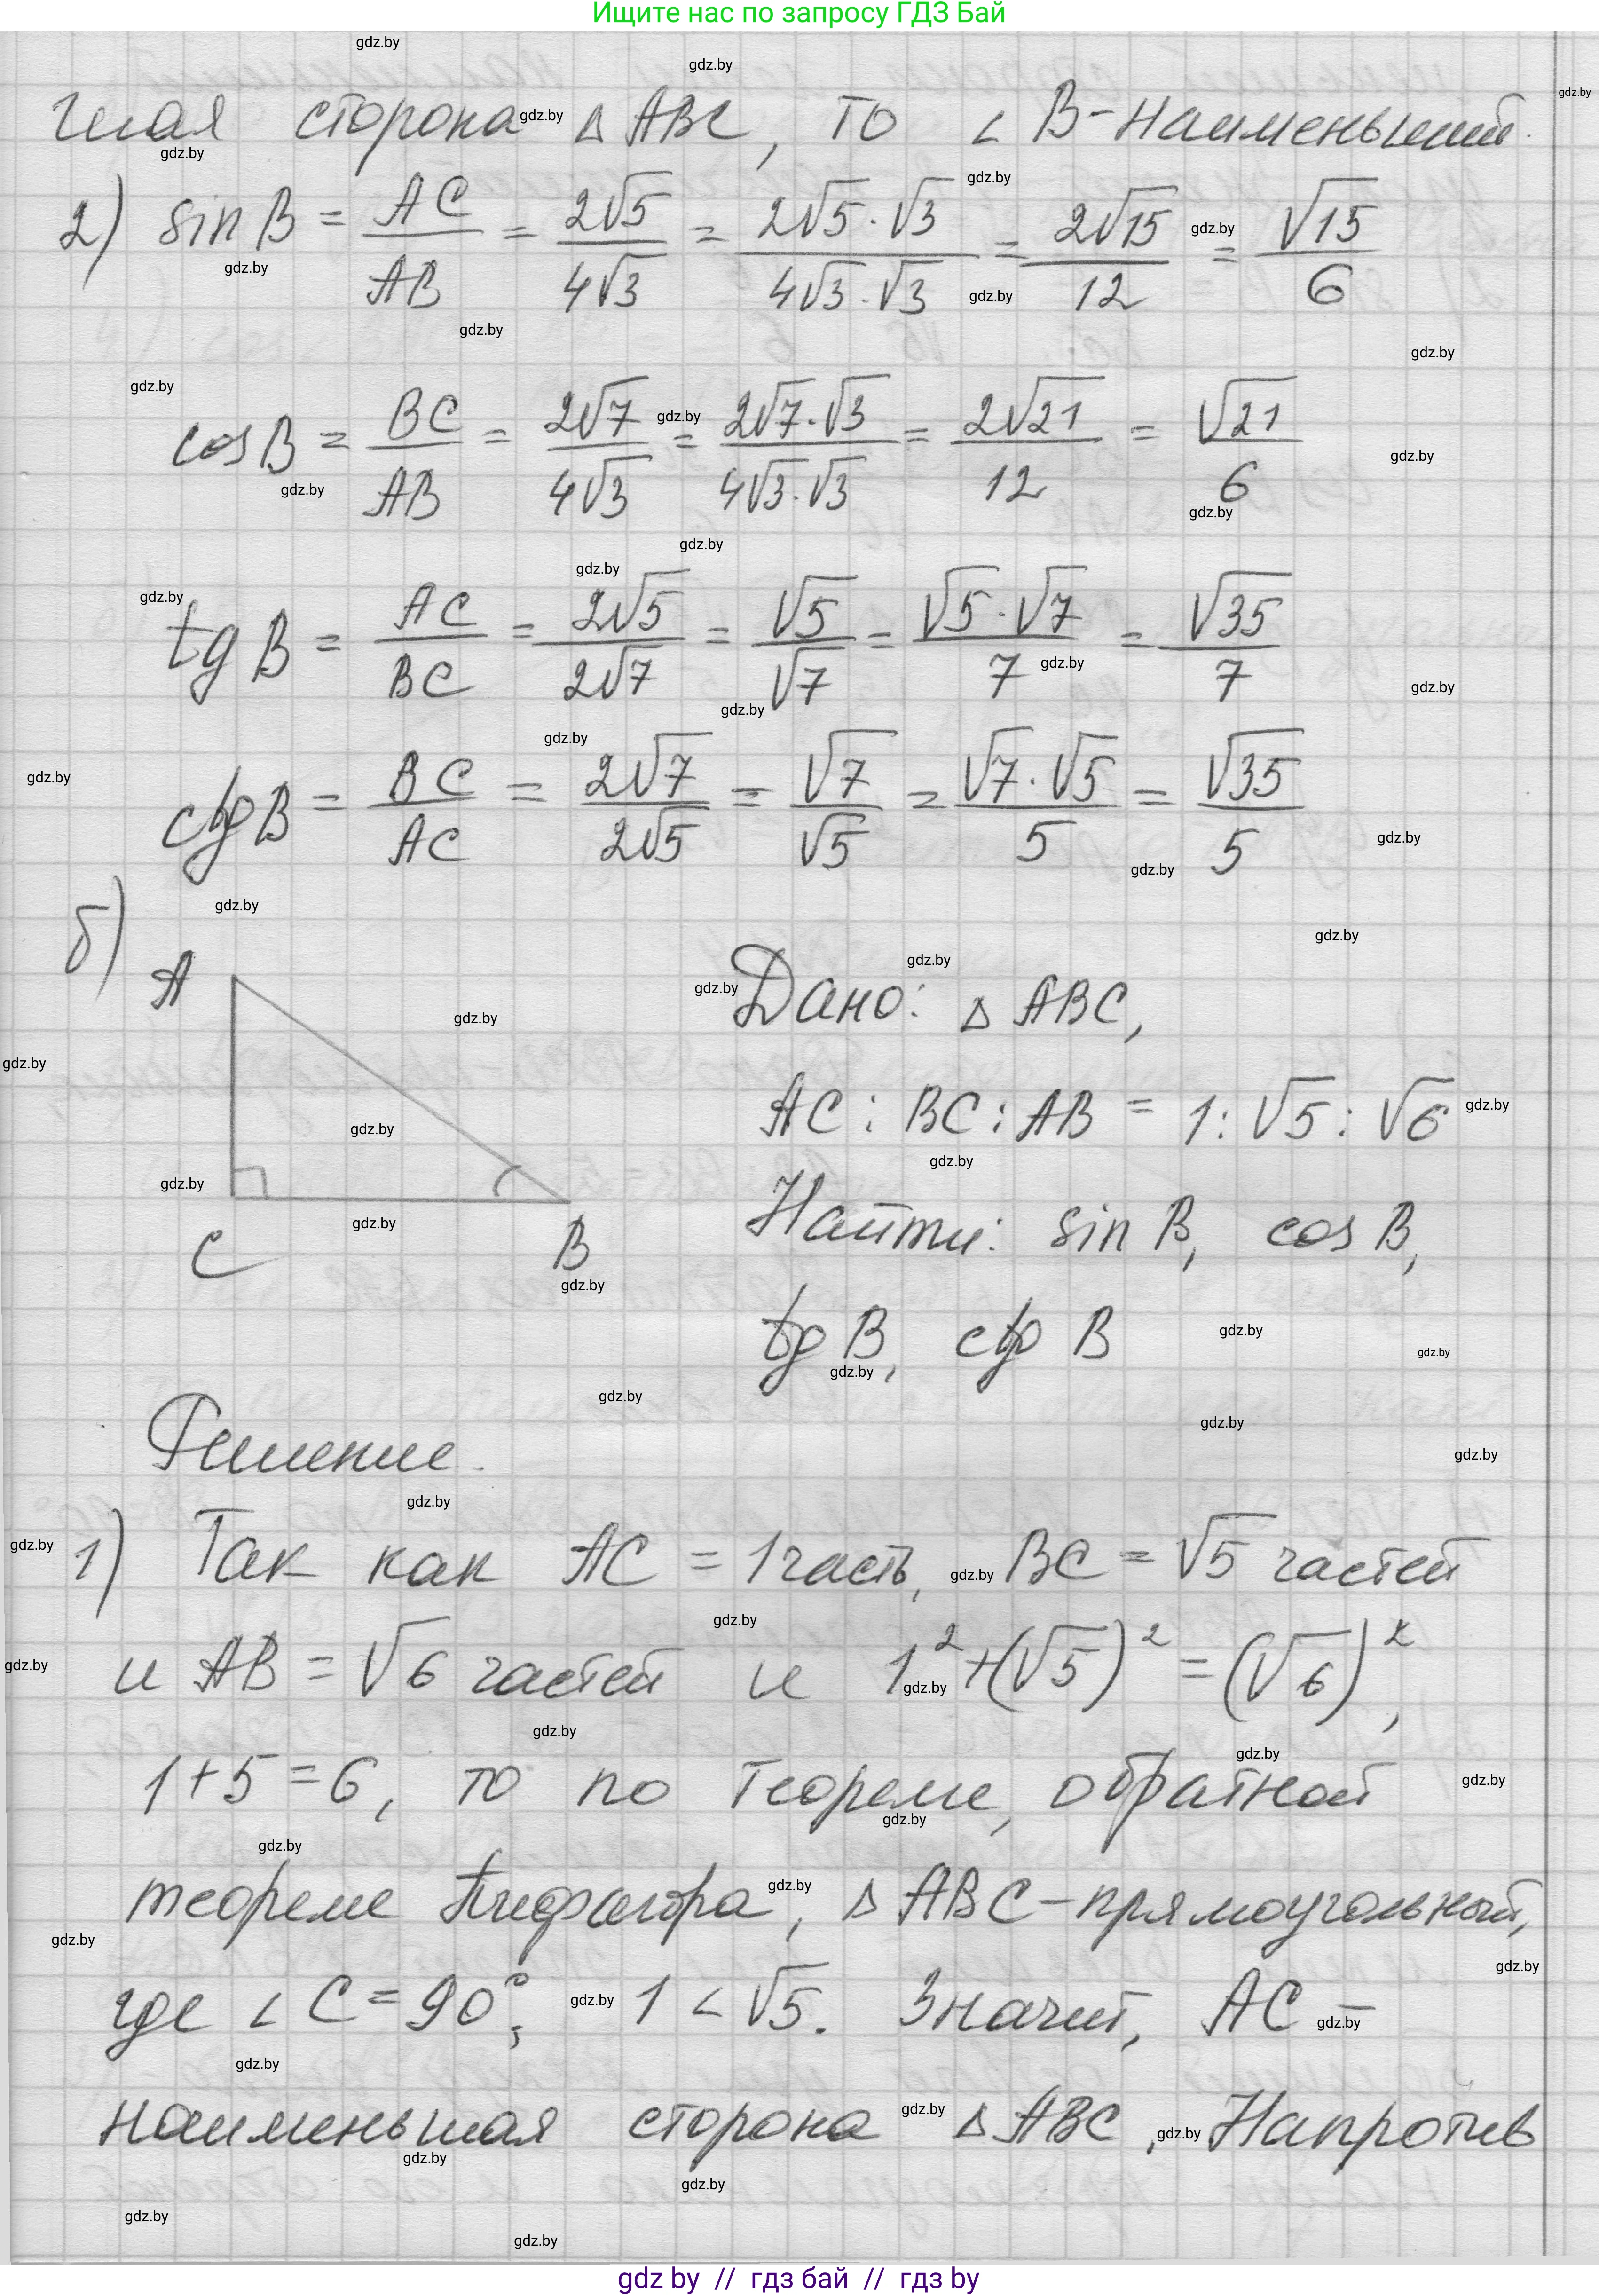 Ищите нас по запросу ГДЗ Бай
шая сторона △ ABC, то ∠ B - наименьший.
2) sin B = AC/AB = 2√5/4√3 = 2√5·√3/4√3·√3 = 2√15/12 = √15/6
cos B = BC/AB = 2√7/4√3 = 2√7·√3/4√3·√3 = 2√21/12 = √21/6
tg B = AC/BC = 2√5/2√7 = √5/√7 = √5·√7/7 = √35/7
ctg B = BC/AC = 2√7/2√5 = √7/√5 = √7·√5/5 = √35/5
б)
A
C
B
Дано: △ ABC,
AC : BC : AB = 1 : √5 : √6
Найти: sin B, cos B,
tg B, ctg B
Решение.
1) Так как AC = 1 часть, BC = √5 частей
и AB = √6 частей и 1² + (√5)² = (√6)²,
1 + 5 = 6, то по теореме, обратной
теореме Пифагора, △ ABC - прямоугольный,
где ∠ C = 90°; 1 < √5. Значит, AC -
наименьшая сторона △ ABC. Напротив
gdz by // гдз бай // гдз by